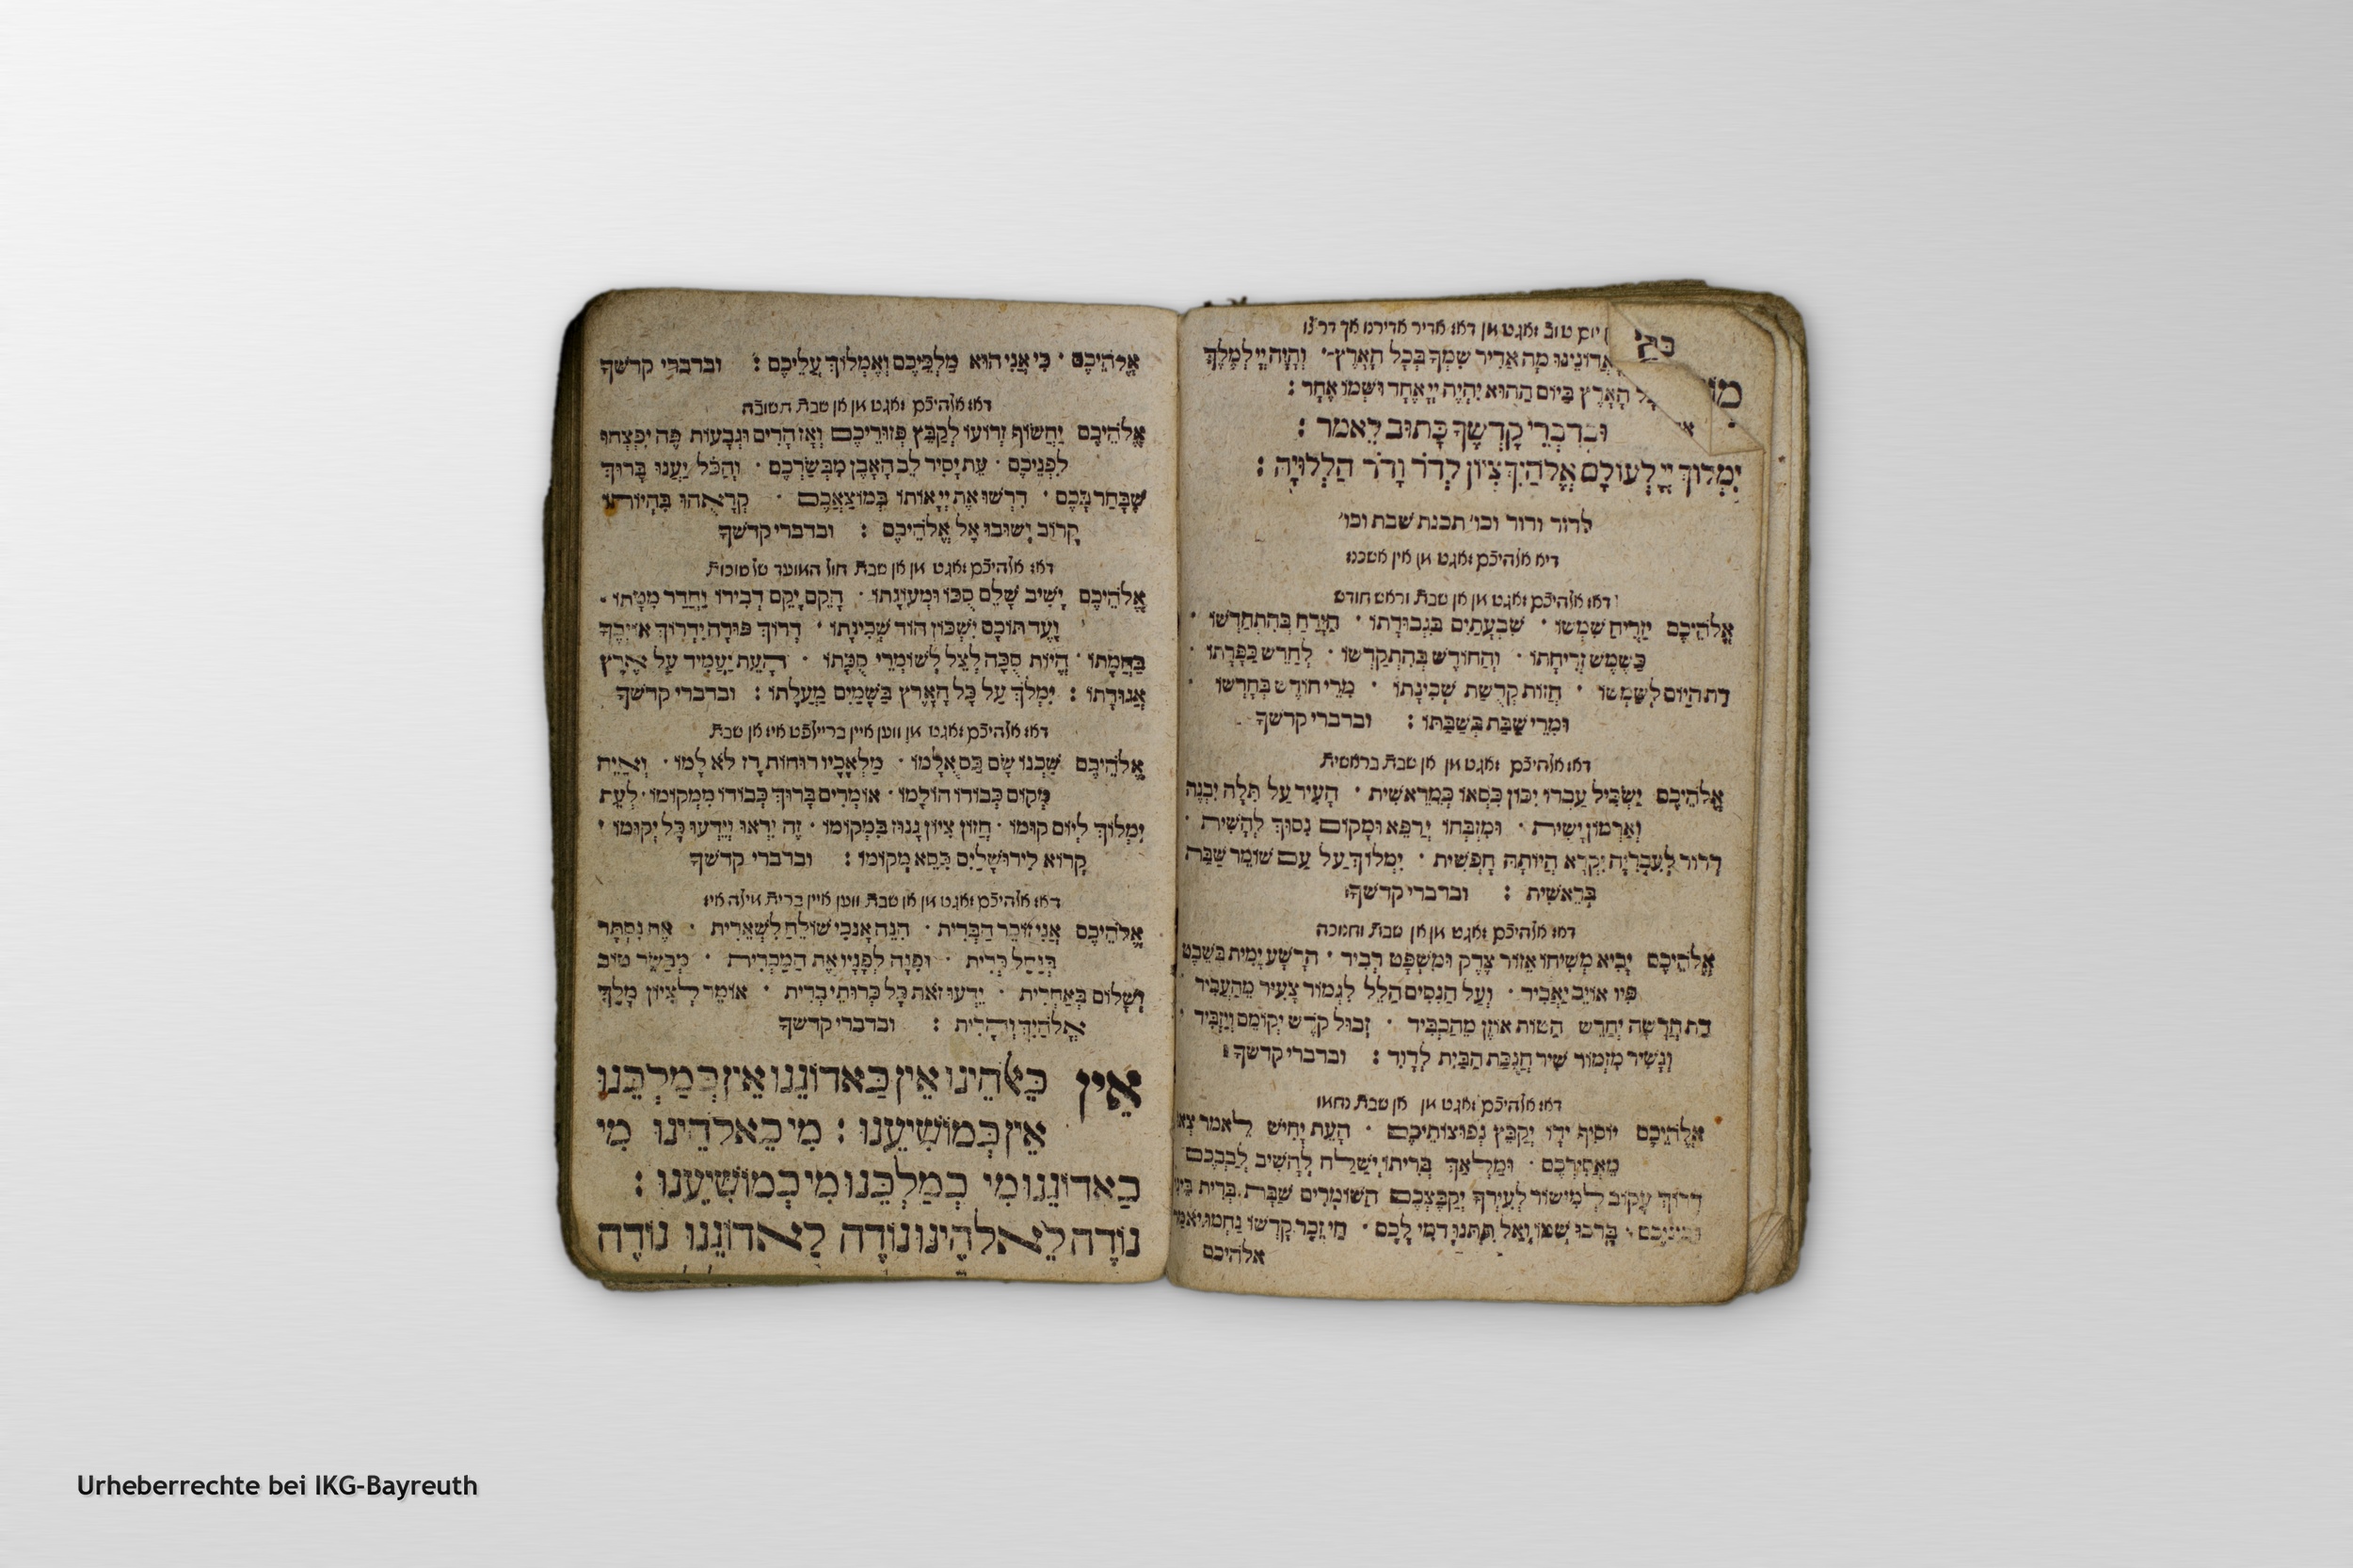 יום טוב זאגט מן דאז אדיר אדירנו אך דר צו
אֲדוֹנֵינוּ מָה אַדִיר שִׁמְךָ בְּכָל הָאָרֶץ׳ וְהָיָה יְיָ לְמֶלֶךְ
הָאָרֶץ בַּיוֹם הַהוּא יִהְיֶה יְיָ אֶחָד וּשְׁמוֹ אֶחָד :
וּבְדִבְרֵי קָדְשְׁךָ כָּתוּב לֵאמֹר :
יִמְלוֹךְ יְיָ לְעוֹלָם אֱלֹהַיִךְ צִיוֹן לְדֹר וָדֹר הַלְלוּיָהּ :
לדור ודור וכו׳ תכנת שבת וכו׳
דיא אלהיכם זאגט מן אין אשכנז
דאז אלהיכם זאגט מן אן שבת וראש חודש
אֱלֹהֵיכֶם יַזְרִיחַ שִׁמְשׁוֹ · שִׁבְעָתַיִם בִּגְבוּרָתוֹ · הַיָּרֵחַ בְּהִתְחַדְּשׁוֹ ·
כַּשֶּׁמֶשׁ זְרִיחָתוֹ · וְהַחוֹדֶשׁ בְּהִתְקַדְּשׁוֹ · לְחַדֵּשׁ כַּפָּרָתוֹ ·
דַת הַיוֹם לְשַׁמְּשׁוֹ · חֲזוֹת קְדֻשַּׁת שְׁכִינָתוֹ · מִדֵי חוֹדֶשׁ בְּחָדְשׁוֹ ·
וּמִדֵי שַׁבָּת בְּשַׁבַּתּוֹ : ובדברי קדשך
דאז אלהיכם זאגט מן אן שבת בראשית
אֱלֹהֵיכֶם יַשְׂכִּיל עַבְדוֹ יִכּוֹן כִּסְאוֹ כְּמֵרֵאשִׁית · הָעִיר עַל תִּלָּהּ יִבְנֶה
וְאַרְמוֹן יָשִׁית · וּמִזְבְּחוֹ יְרַפֵּא וּמָקוֹם נָסוּךְ לְהָשִׁית ·
דְרוֹר לְעִבְרִיָּה יִקְרָא הֱיוֹתָהּ חָפְשִׁית · יִמְלוֹךְ עַל עַם שׁוֹמֵר שַׁבַּת
בְּרֵאשִׁית : ובדברי קדשך
דאז אלהיכם זאגט מן אן שבת וחנוכה
אֱלֹהֵיכֶם יָבִיא מְשִׁיחוֹ אֵזוֹר צֶדֶק וּמִשְׁפָּט רָבִיד · הָרָשָׁע יָמִית בְּשֵׁבֶט
פִּיו אוֹיֵב יַאֲבִיד · וְעַל הַנִּסִּים הַלֵּל לִגְמוֹר צָעִיר מֵהַעֲבִיד
דַת חֲדָשָׁה יְחַדֵּשׁ הַטּוֹת אוֹזֶן מֵהַכְבִּיד · זְבוּל קֹדֶשׁ יְקוֹמֵם וְיַזְבִּיד ·
וְנָשִׁיר מִזְמוֹר שִׁיר חֲנֻכַּת הַבַּיִת לְדָוִד : ובדברי קדשך
דאז אלהיכם זאגט מן אן שבת נחמו
אֱלֹהֵיכֶם יוֹסִיף יָדוֹ יְקַבֵּץ נְפוּצוֹתֵיכֶם · הָעֵת יָחִישׁ לֵאמֹר צְאוּ
מֵאֲסִירְכֶם · וּמַלְאַךְ בְּרִיתוֹ יִשְׁלַח לְהָשִׁיב לְבַבְכֶם
דְרוֹךְ עָקוֹב לְמִישׁוֹר לְעִירְךָ יְקַבֶּצְכֶם הַשּׁוֹמְרִים שַׁבַּת בְּרִית
בָּרְכוּ שְׁמוֹ וְאַל תִּתְּנוּ דֳמִי לָכֶם · חַי זָכַר קָדְשׁוֹ נַחֲמוּ יֹאמַר
אלהיכם
אֱלֹהֵיכֶם · כִּי אֲנִי הוּא מַלְכְּכֶם וְאֶמְלוֹךְ עֲלֵיכֶם : ובדברי קדשך
דאז אלהיכם זאגט מן אן שבת תשובה
אֱלֹהֵיכֶם יַחֲשׂוֹף זְרוֹעוֹ לְקַבֵּץ פְּזוּרֵיכֶם וְאָז הָרִים וּגְבָעוֹת פֶּה יִפְצְחוּ
לִפְנֵיכֶם · עֵת יָסִיר לֵב הָאֶבֶן מִבְּשַׂרְכֶם · וְהַכֹּל יַעֲנוּ בָּרוּךְ
שֶׁבָּחַר בָּכֶם · דִרְשׁוּ אֶת יְיָ אוֹתוֹ בְּמוֹצַאֲכֶם · קְרָאֻהוּ בִּהְיוֹתוֹ
קָרוֹב יָשׁוּבוּ אֶל אֱלֹהֵיכֶם : ובדברי קדשך
דאז אלהיכם זאגט מן אן שבת חול המועד של סוכות
אֱלֹהֵיכֶם יָשִׁיב שָׁלֵם סֻכּוֹ וּמְעוֹנָתוֹ · הָקֵם יָקֵם דְבִירוֹ וַחֲדַר מִטָּתוֹ ·
וָעֶד תּוֹכָם יִשְׁכּוֹן הוֹד שְׁכִינָתוֹ · דָרוֹךְ פּוּרָה יִדְרוֹךְ אוֹיְבֶיךָ
בַּחֲמָתוֹ · הֱיוֹת סֻכָּה לְצֵל לְשׁוֹמְרֵי סֻכָּתוֹ · הָעֵת יַעֲמִיד עַל אֶרֶץ
אֲגוּדָתוֹ : יִמְלֹךְ עַל כָּל הָאָרֶץ בַּשָּׁמַיִם מַעֲלָתוֹ : ובדברי קדשך
דאז אלהיכם זאגט מן ווען איין ברייליפט איז אן שבת
אֱלֹהֵיכֶם שַׁכְנוֹ שָׂם גַּם אֻלָמוֹ · מַלְאָכָיו רוּחוֹת רָז לֹא לָמוֹ · וְאַיֵּה
מְקוֹם כְּבוֹדוֹ הוֹלָמוֹ · אוֹמְרִים בָּרוּךְ כְּבוֹדוֹ מִמְּקוֹמוֹ · לְעֵת
יִמְלוֹךְ לְיוֹם קוּמוֹ · חָזוֹן צִיוֹן גָּנוּז בִּמְקוֹמוֹ · זֶה יִרְאוּ וְיֵדְעוּ כָּל יְקוּמוֹ ׳
קָרוֹא לִירוּשָׁלַיִם כִּסֵּא מְקוֹמוֹ : ובדברי קדשך
דאז אלהיכם זאגט מן אן שבת ווען איין ברית מילה איז
אֱלֹהֵיכֶם אֲנִי זוֹכֵר הַבְּרִית · הִנֵּה אָנֹכִי שׁוֹלֵחַ לִשְׁאֵרִית · אֶת נִסְתָּר
בְּנַחַל כְּרִית · וּפִנָּה לְפָנָיו אֶת הַמַּכְרִית · מְבַשֵּׂר טוֹב
וְשָׁלוֹם בְּאַחֲרִית · יֵדְעוּ זֹאת כָּל כְּרוּתֵי בְרִית · אוֹמֵר לְצִיוֹן מָלַךְ
אֱלֹהַיִךְ וְהָרִית : ובדברי קדשך
אֵין כֵּאלֹהֵינוּ אֵין כַּאדוֹנֵנוּ אֵין כְּמַלְכֵּנוּ
אֵין כְּמוֹשִׁיעֵנוּ : מִי כֵאלֹהֵינוּ מִי
כַאדוֹנֵנוּ מִי כְמַלְכֵּנוּ מִי כְמוֹשִׁיעֵנוּ :
נוֹדֶה לֵאלֹהֵינוּ נוֹדֶה לַאדוֹנֵנוּ נוֹדֶה
Urheberrechte bei IKG-Bayreuth